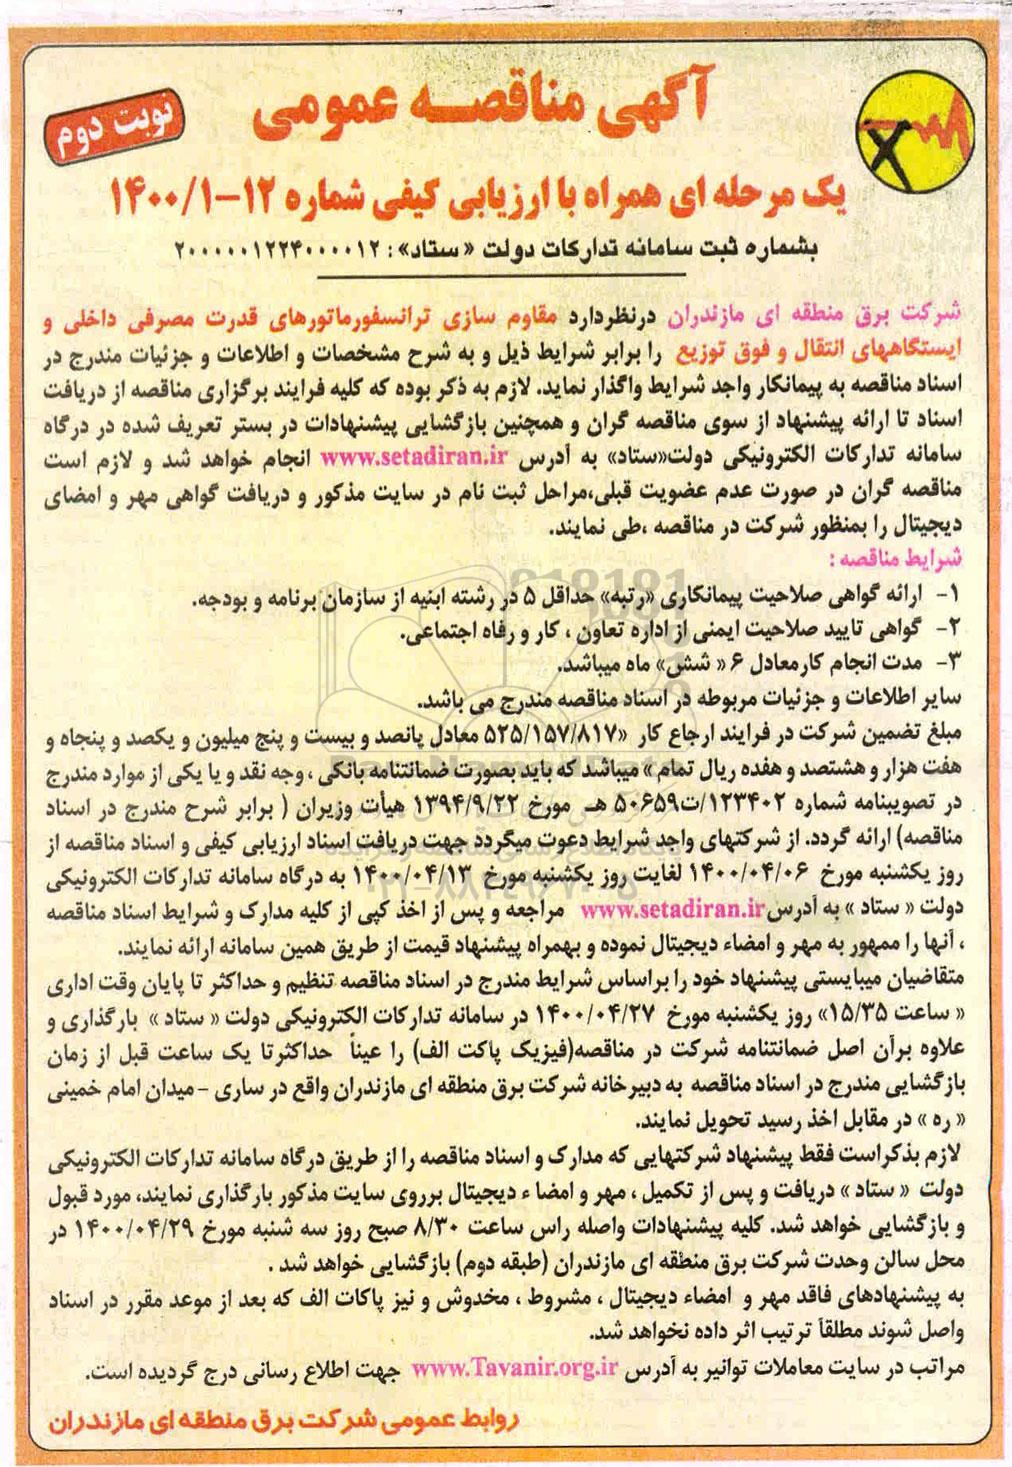 آگهی مناقصه عمومی
نوبت دوم
یک مرحله ای همراه با ارزیابی کیفی شماره ۱۲-۱۴۰۰/۱
بشماره ثبت سامانه تدارکات دولت «ستاد»: ۲۰۰۰۰۰۱۲۲۴۰۰۰۰۱۲
شرکت برق منطقه ای مازندران درنظردارد مقاوم سازی ترانسفورماتورهای قدرت مصرفی داخلی و
ایستگاههای انتقال و فوق توزیع را برابر شرایط ذیل و به شرح مشخصات و اطلاعات و جزئیات مندرج در
اسناد مناقصه به پیمانکار واجد شرایط واگذار نماید. لازم به ذکر بوده که کلیه فرایند برگزاری مناقصه از دریافت
اسناد تا ارائه پیشنهاد از سوی مناقصه گران و همچنین بازگشایی پیشنهادات در بستر تعریف شده در درگاه
سامانه تدارکات الکترونیکی دولت«ستاد» به آدرس www.setadiran.ir انجام خواهد شد و لازم است
مناقصه گران در صورت عدم عضویت قبلی،مراحل ثبت نام در سایت مذکور و دریافت گواهی مهر و امضای
دیجیتال را بمنظور شرکت در مناقصه ،طی نمایند.
شرایط مناقصه :
۱- ارائه گواهی صلاحیت پیمانکاری «رتبه» حداقل ۵ در رشته ابنیه از سازمان برنامه و بودجه.
۲- گواهی تایید صلاحیت ایمنی از اداره تعاون ، کار و رفاه اجتماعی.
۳- مدت انجام کارمعادل ۶ « شش» ماه میباشد.
سایر اطلاعات و جزئیات مربوطه در اسناد مناقصه مندرج می باشد.
مبلغ تضمین شرکت در فرایند ارجاع کار «۵۲۵/۱۵۷/۸۱۷ معادل پانصد و بیست و پنج میلیون و یکصد و پنجاه و
هفت هزار و هشتصد و هفده ریال تمام » میباشد که باید بصورت ضمانتنامه بانکی ، وجه نقد و یا یکی از موارد مندرج
در تصویبنامه شماره ۱۲۳۴۰۲/ت۵۰۶۵۹ هـ مورخ ۱۳۹۴/۹/۲۲ هیأت وزیران ( برابر شرح مندرج در اسناد
مناقصه) ارائه گردد. از شرکتهای واجد شرایط دعوت میگردد جهت دریافت اسناد ارزیابی کیفی و اسناد مناقصه از
روز یکشنبه مورخ ۱۴۰۰/۰۴/۰۶ لغایت روز یکشنبه مورخ ۱۴۰۰/۰۴/۱۳ به درگاه سامانه تدارکات الکترونیکی
دولت « ستاد » به آدرس www.setadiran.ir مراجعه و پس از اخذ کپی از کلیه مدارک و شرایط اسناد مناقصه
، آنها را ممهور به مهر و امضاء دیجیتال نموده و بهمراه پیشنهاد قیمت از طریق همین سامانه ارائه نمایند.
متقاضیان میبایستی پیشنهاد خود را براساس شرایط مندرج در اسناد مناقصه تنظیم و حداکثر تا پایان وقت اداری
« ساعت ۱۵/۳۵» روز یکشنبه مورخ ۱۴۰۰/۰۴/۲۷ در سامانه تدارکات الکترونیکی دولت « ستاد » بارگذاری و
علاوه برآن اصل ضمانتنامه شرکت در مناقصه(فیزیک پاکت الف) را عیناً حداکثرتا یک ساعت قبل از زمان
بازگشایی مندرج در اسناد مناقصه به دبیرخانه شرکت برق منطقه ای مازندران واقع در ساری - میدان امام خمینی
« ره » در مقابل اخذ رسید تحویل نمایند.
لازم بذکراست فقط پیشنهاد شرکتهایی که مدارک و اسناد مناقصه را از طریق درگاه سامانه تدارکات الکترونیکی
دولت « ستاد » دریافت و پس از تکمیل ، مهر و امضا ء دیجیتال برروی سایت مذکور بارگذاری نمایند، مورد قبول
و بازگشایی خواهد شد. کلیه پیشنهادات واصله راس ساعت ۸/۳۰ صبح روز سه شنبه مورخ ۱۴۰۰/۰۴/۲۹ در
محل سالن وحدت شرکت برق منطقه ای مازندران (طبقه دوم) بازگشایی خواهد شد .
به پیشنهادهای فاقد مهر و امضاء دیجیتال ، مشروط ، مخدوش و نیز پاکات الف که بعد از موعد مقرر در اسناد
واصل شوند مطلقاً ترتیب اثر داده نخواهد شد.
مراتب در سایت معاملات توانیر به آدرس www.Tavanir.org.ir جهت اطلاع رسانی درج گردیده است.
روابط عمومی شرکت برق منطقه ای مازندران